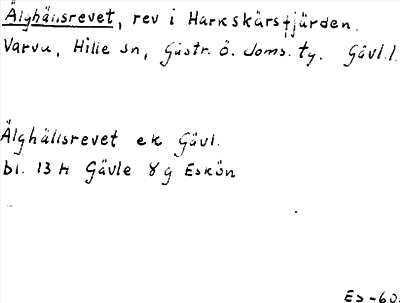 Älghällsrevet, rev i Harkskärsfjärden.
Varva, Hille sn, Gästr. ö. doms. ty. Gävl. l.
Älghällsrevet ek Gävl.
bl. 13 H Gävle 8 g Eskön
Es -60.